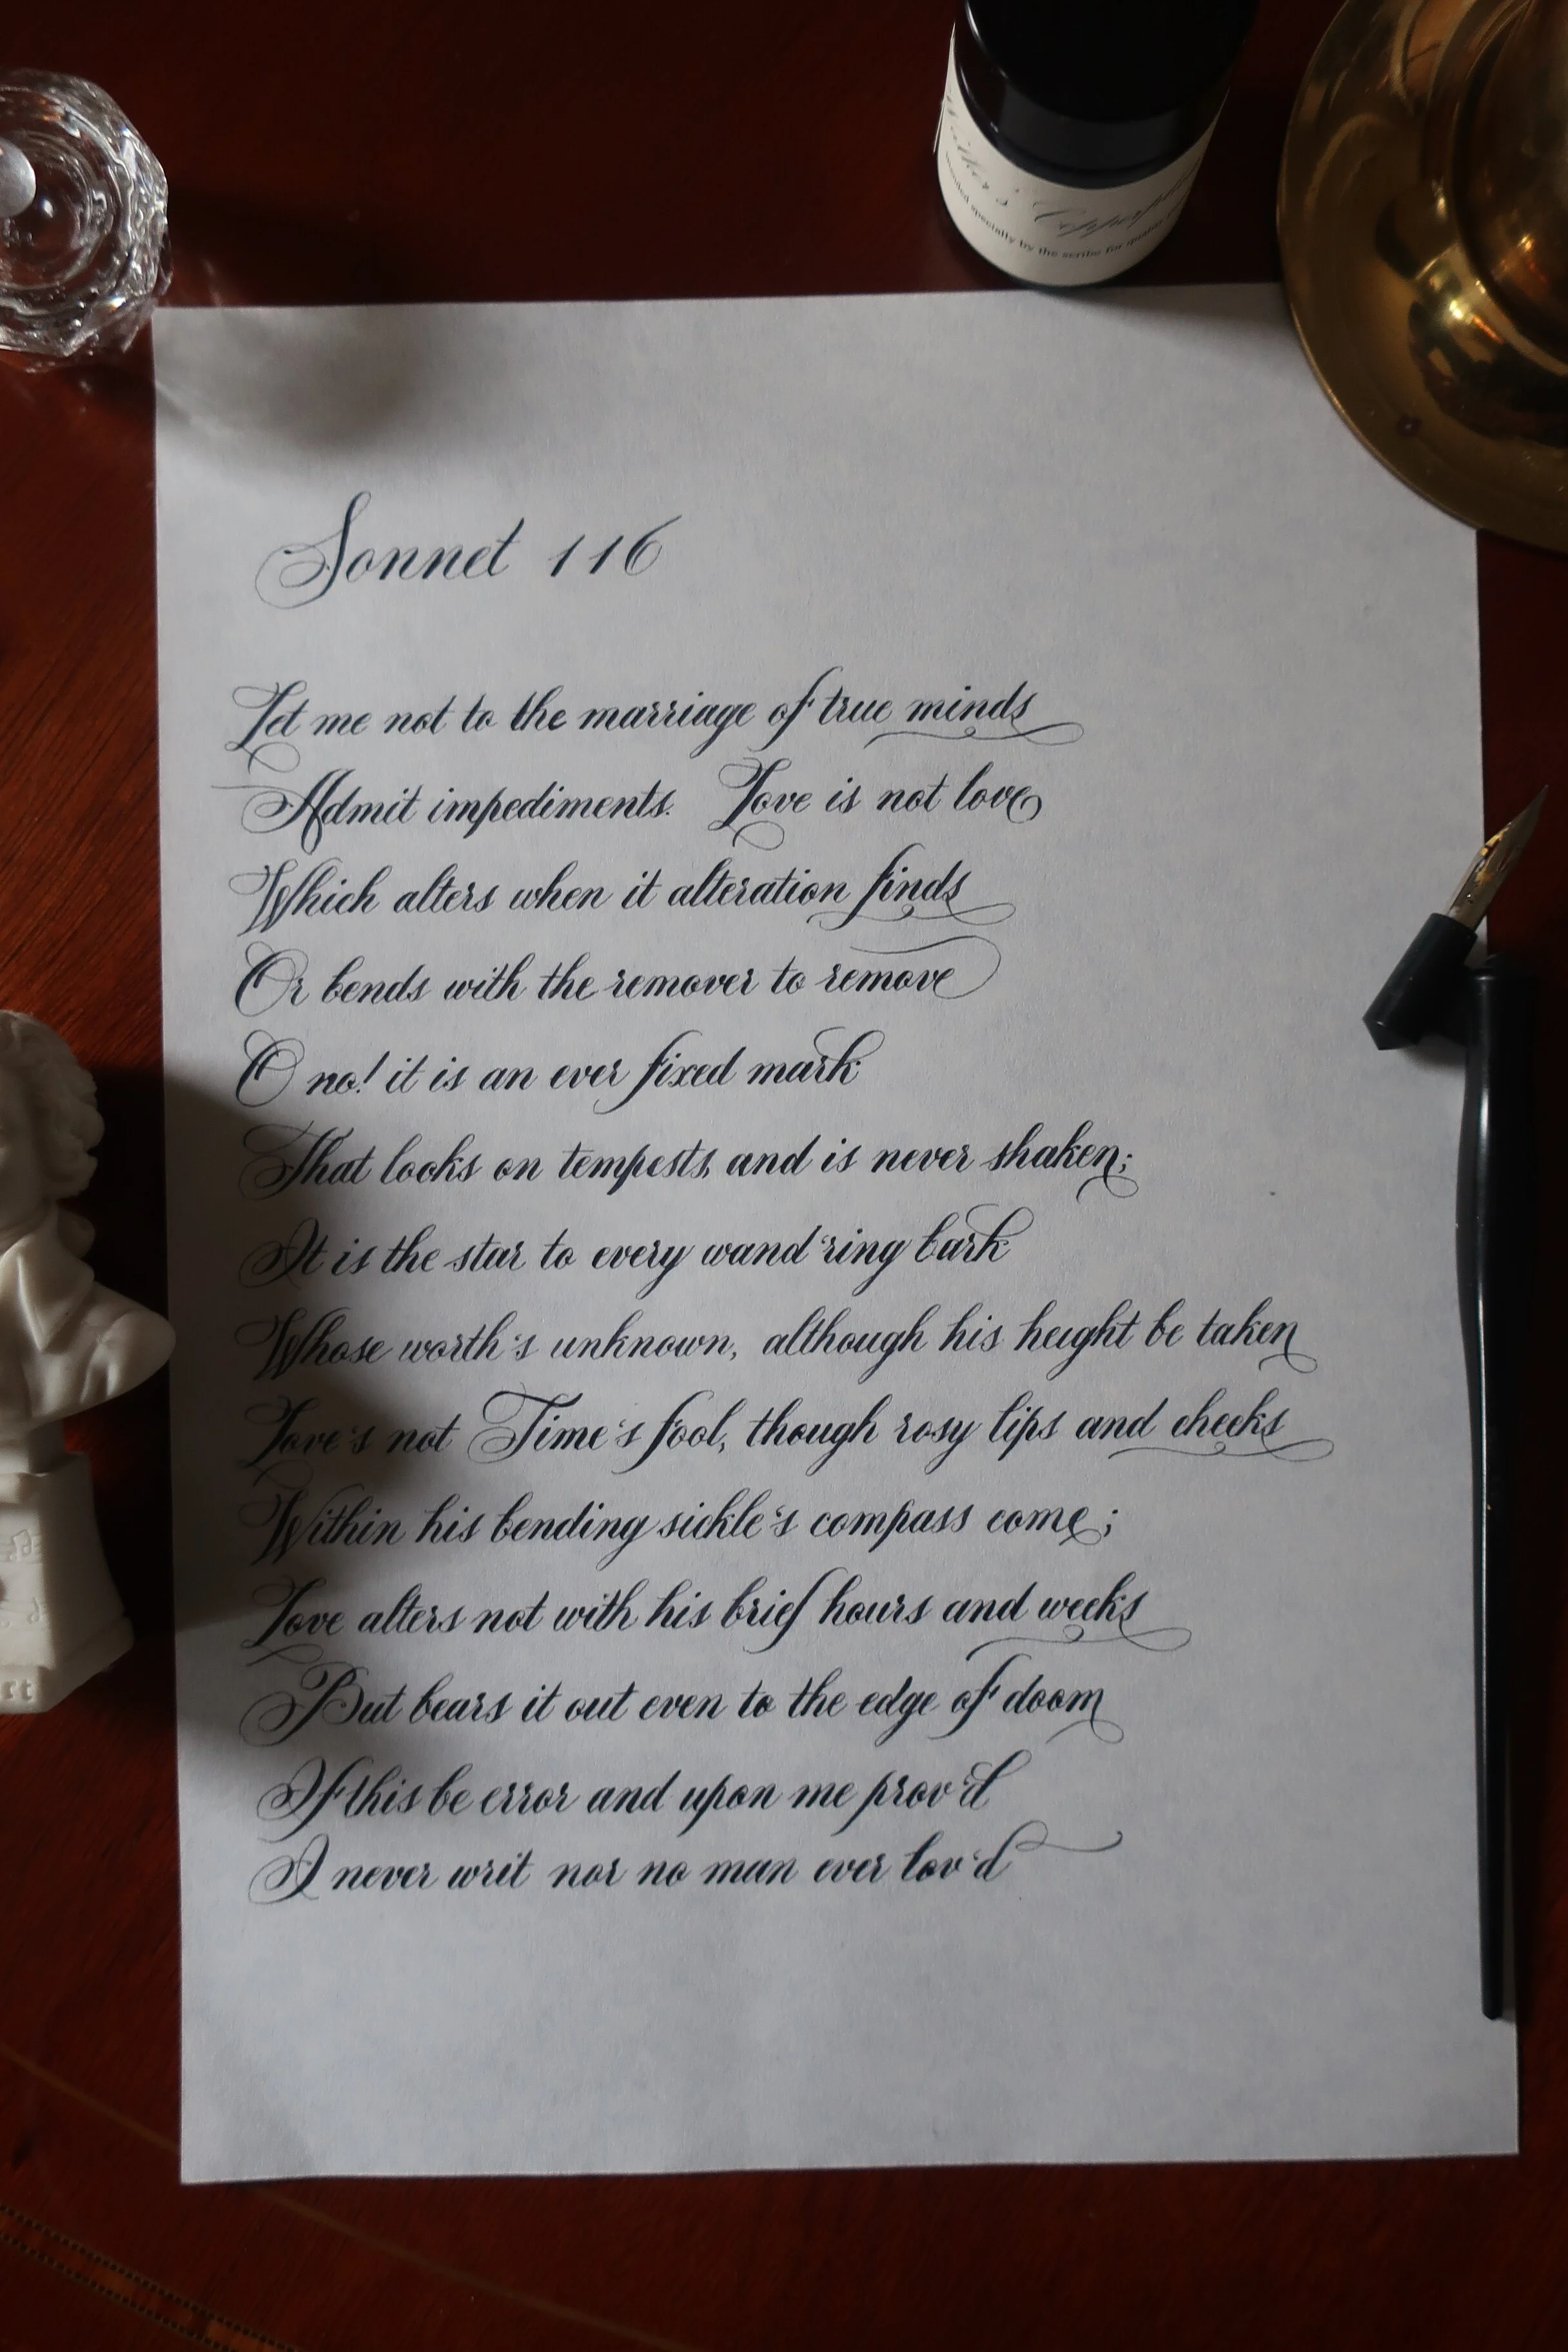 Copperpl
specially by the scribe for
Sonnet 116
Let me not to the marriage of true minds
Admit impediments. Love is not love
Which alters when it alteration finds
Or bends with the remover to remove
O no! it is an ever fixed mark
That looks on tempests, and is never shaken;
It is the star to every wand'ring bark
Whose worth's unknown, although his height be taken
Love's not Time's fool, though rosy lips and cheeks
Within his bending sickle's compass come;
Love alters not with his brief hours and weeks
But bears it out even to the edge of doom
If this be error and upon me prov'd
I never writ nor no man ever lov'd